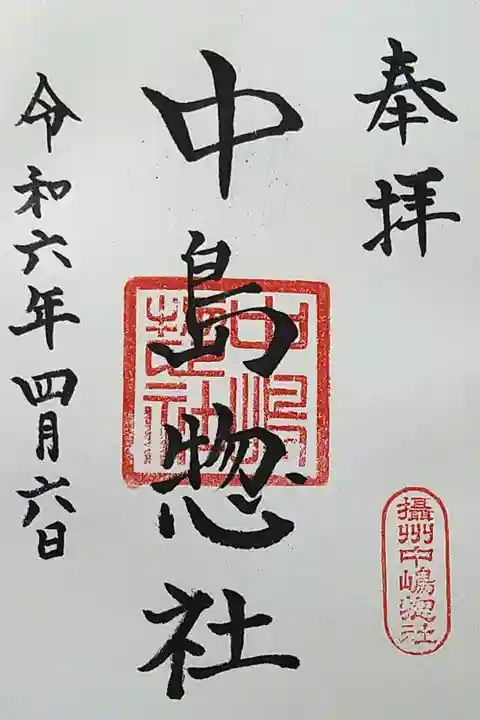 奉拝
中島惣社
中嶋惣社
攝州中嶋惣社
令和六年四月六日